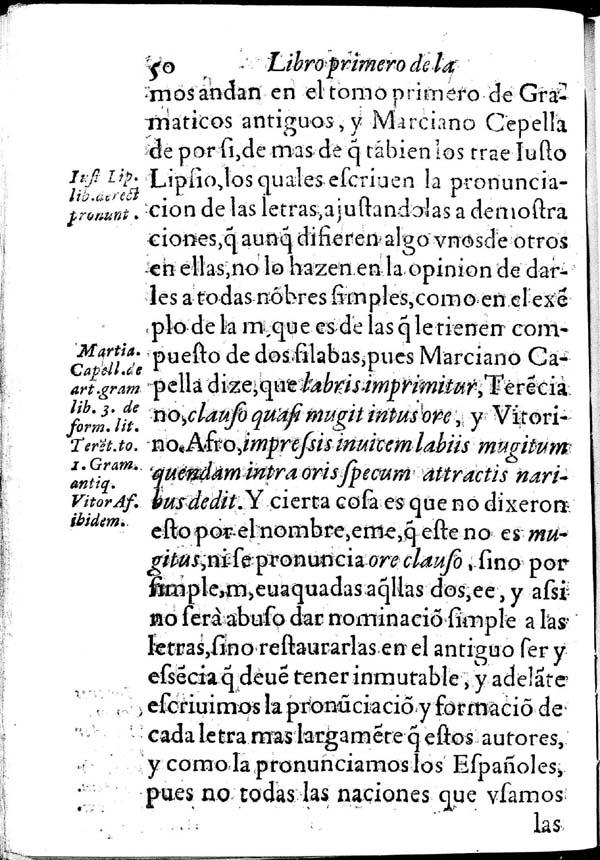 50 Libro primero de la
mos andan en el tomo primero de Gra-
maticos antiguos, y Marciano Cepella
de por si, de mas de q̃ tãbien los trae Iusto
Lipsio, los quales escriuen la pronuncia-
cion de las letras, ajustandolas a demostra
ciones, q̃ aunq̃ difieren algo vnos de otros
en ellas, no lo hazen en la opinion de dar-
les a todas nõbres simples, como en el exẽ
plo de la m, que es de las q̃ le tienen com-
puesto de dos silabas, pues Marciano Ca-
pella dize, que labris imprimitur, Terẽcia
no, clauso quasi mugit intus ore, y Vitori-
no Afro, impressis inuicem labiis mugitum
quendam intra oris specum attractis nari
bus dedit. Y cierta cosa es que no dixeron
esto por el nombre, eme, q̃ este no es mu-
gitus, ni se pronuncia ore clauso, sino por
simple, m, euaquadas aq̃llas dos, ee, y assi
no serà abuso dar nominaciõ simple a las
letras, sino restaurarlas en el antiguo ser y
essẽcia q̃ deuẽ tener inmutable, y adelãte
escriuimos la pronũciaciõ y formaciõ de
cada letra mas largamẽte q̃ estos autores,
y como la pronunciamos los Españoles,
pues no todas las naciones que vsamos
las
Iust Lip.
lib. de rect
pronunt.
Martia.
Capell. de
art. gram
lib. 3. de
form. lit.
Terẽt. to.
1. Gram.
antiq.
Vitor Af.
ibidem.